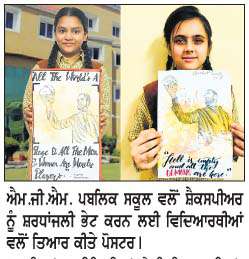 All The World's A
Stage & All The Men
& Women Are Merely
Players".
"Hell is empty
and all the
DEVILS are here."
ਐਮ.ਜੀ.ਐਮ. ਪਬਲਿਕ ਸਕੂਲ ਵਲੋਂ ਸ਼ੈਕਸਪੀਅਰ
ਨੂੰ ਸ਼ਰਧਾਂਜਲੀ ਭੇਟ ਕਰਨ ਲਈ ਵਿਦਿਆਰਥੀਆਂ
ਵਲੋਂ ਤਿਆਰ ਕੀਤੇ ਪੋਸਟਰ।